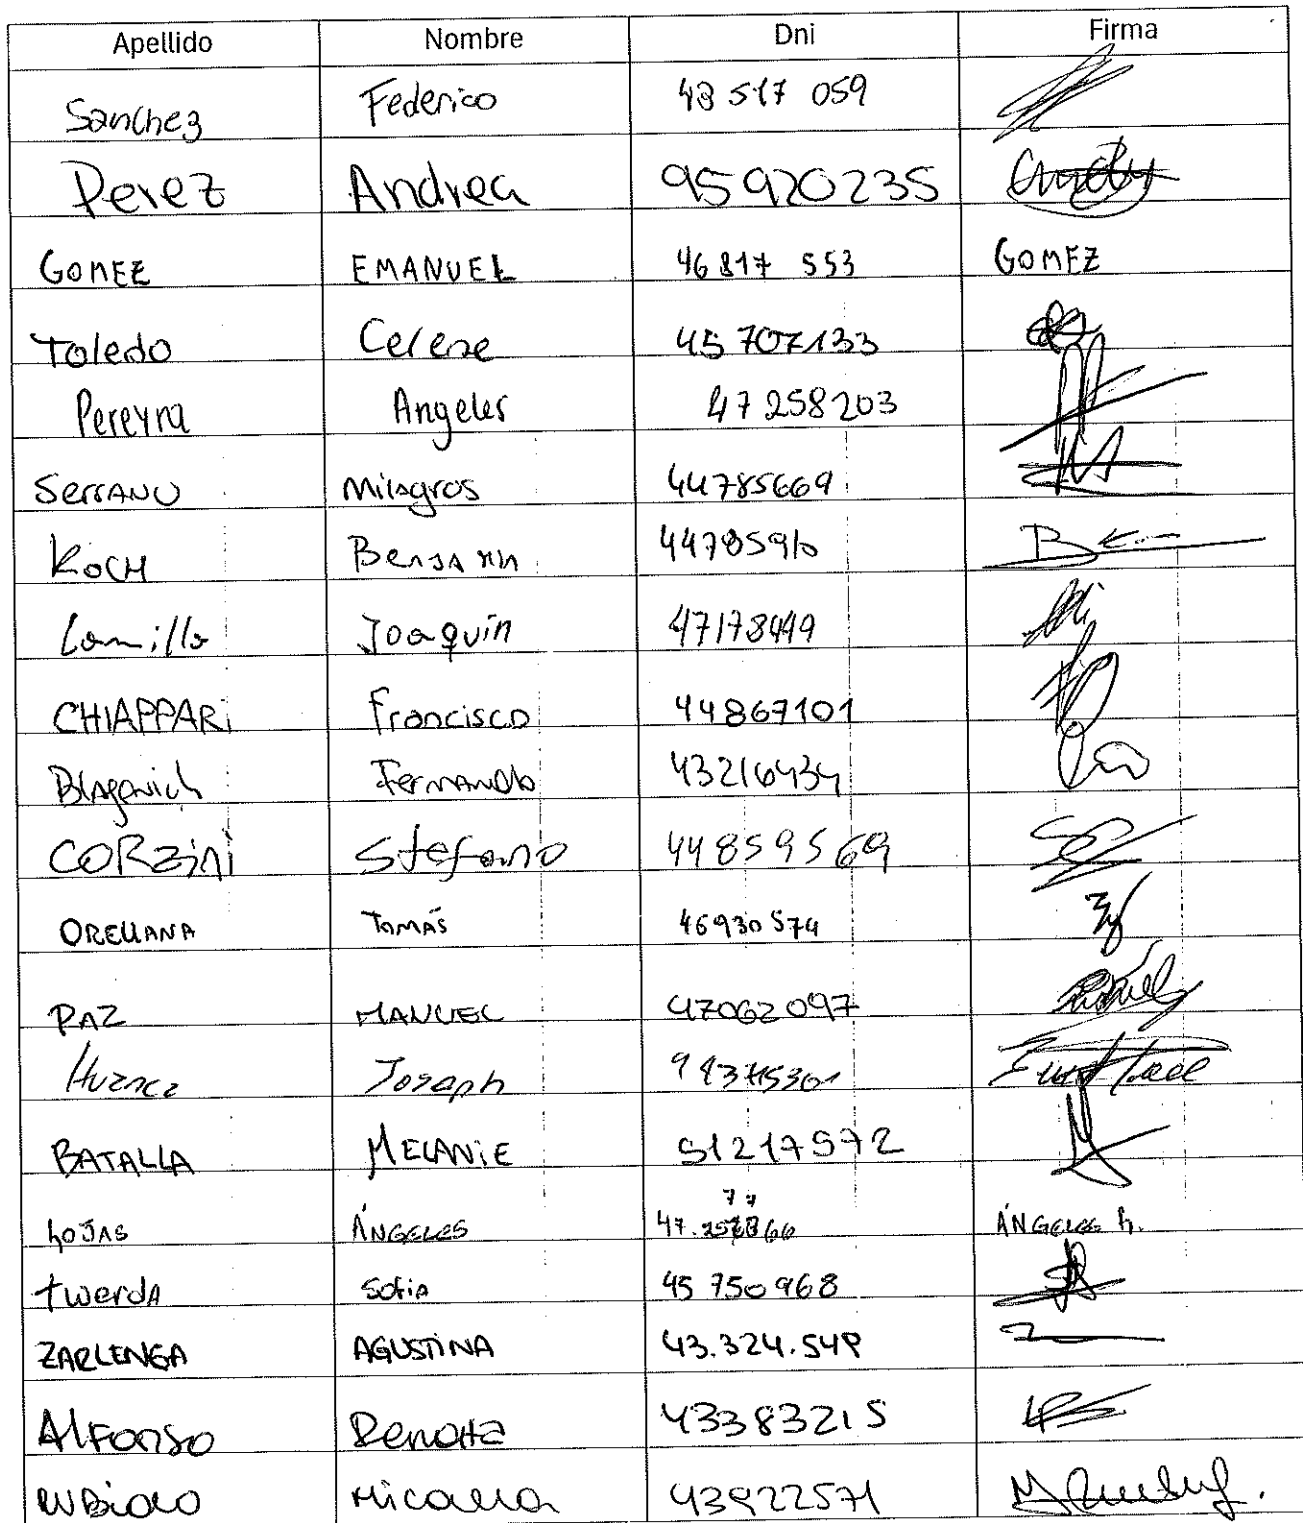 Apellido Nombre Dni Firma
Sanchez Federico 48 517 059
Perez Andrea 95920235
GOMEZ EMANUEL 46 817 553 GOMEZ
Toledo Celene 45 707133
Pereyra Angeles 47 258203
SerrANO Milagros 44785669
KOCH BenJAmin 44785910
Joaquín 47178449
CHIAPPARi Francisco 44867101
Blagovich Fernando 43216434
CORZini Stefano 44859569
ORELLANA TOMÁS 46930574
PAZ MANUEL 47062097
Joseph
BATALLA MELANiE 51217572
ROJAS ÁNGELES ÁNGELES R.
twerdA Sofia 45 750 968
ZARLENGA AGUSTINA 43.324.548
AlFonso Renata 43383215
RUBiOLO Micaela 43922571